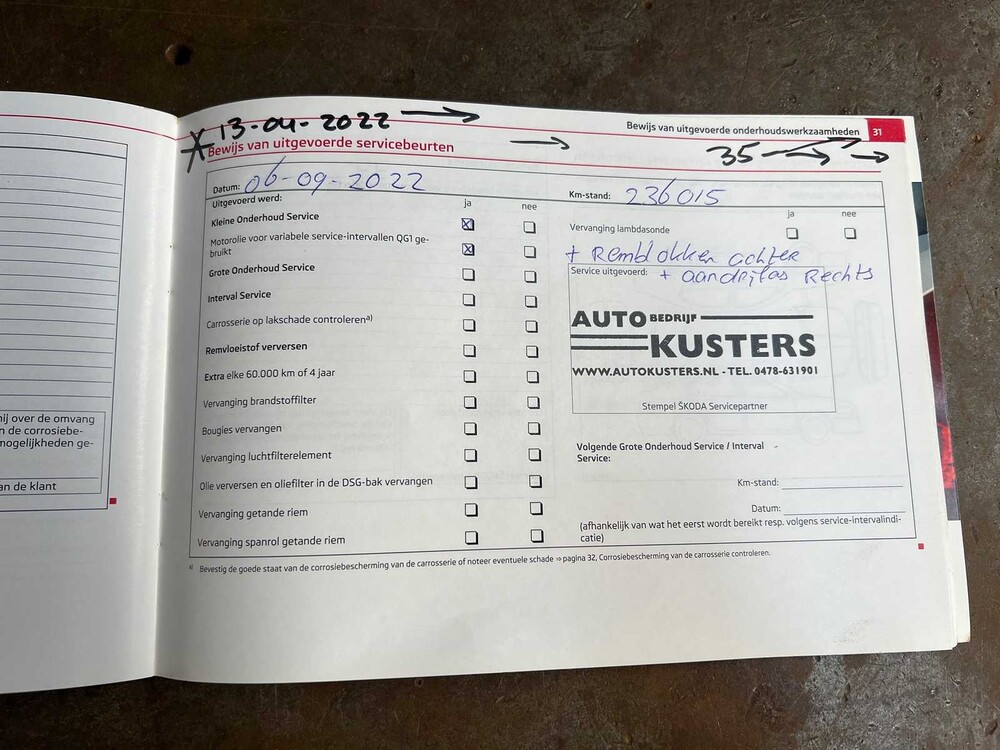 13-04-2022
Bewijs van uitgevoerde onderhoudswerkzaamheden 31
Bewijs van uitgevoerde servicebeurten
35
Datum: 06-09-2022
Km-stand: 236015
Uitgevoerd werd:
ja nee
Kleine Onderhoud Service
Motorolie voor variabele service-intervallen QG1 ge-
bruikt
Grote Onderhoud Service
Interval Service
Carrosserie op lakschade controlerenª⁾
Remvloeistof verversen
Extra elke 60.000 km of 4 jaar
Vervanging brandstoffilter
Bougies vervangen
Vervanging luchtfilterelement
Olie verversen en oliefilter in de DSG-bak vervangen
Vervanging getande riem
Vervanging spanrol getande riem
ja nee
Vervanging lambdasonde
+ Remblokken achter
Service uitgevoerd: + aandrijfas Rechts
AUTO BEDRIJF
KUSTERS
WWW.AUTOKUSTERS.NL - TEL. 0478-631901
Stempel ŠKODA Servicepartner
Volgende Grote Onderhoud Service / Interval -
Service:
Km-stand:
Datum:
(afhankelijk van wat het eerst wordt bereikt resp. volgens service-intervalindi-
catie)
ª⁾ Bevestig de goede staat van de corrosiebescherming van de carrosserie of noteer eventuele schade ⇒ pagina 32, Corrosiebescherming van de carrosserie controleren.
ij over de omvang
n de corrosiebe-
mogelijkheden ge-
an de klant